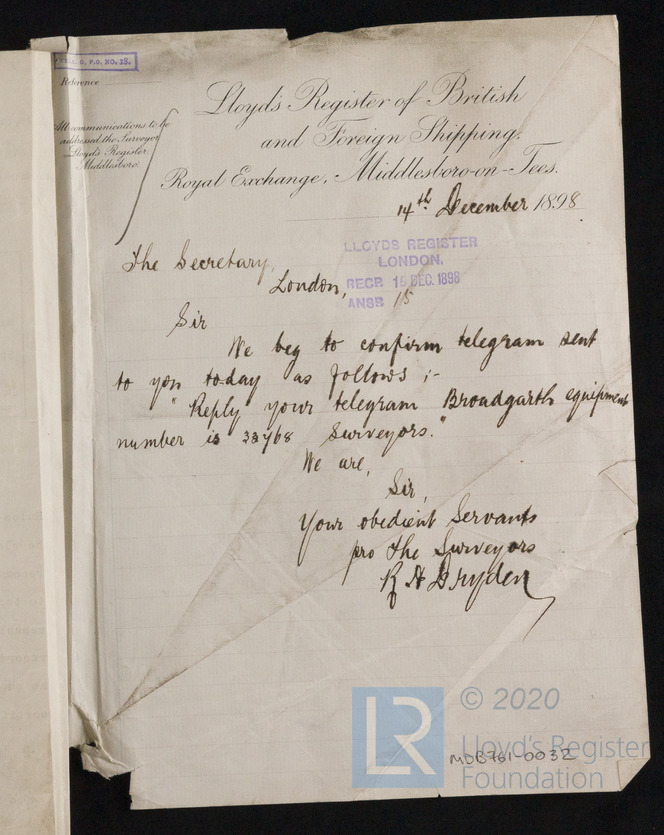 Reference
All communications to be
addressed the Surveyor
Lloyd's Register,
Middlesboro'.
Lloyd's Register of British
and Foreign Shipping.
Royal Exchange, Middlesboro-on-Tees.
14th December 1898
LLOYDS REGISTER
LONDON.
RECD 15 DEC. 1898
ANSD 15
The Secretary,
London,
Sir
We beg to confirm telegram sent
to you today as follows ;-
"Reply your telegram Broadgarth equipment
number is 33768 Surveyors."
We are,
Sir,
Your obedient Servants
pro the Surveyors
R H Dryden
© 2020
LR
Lloyd's Register
Foundation
MDB761-0032